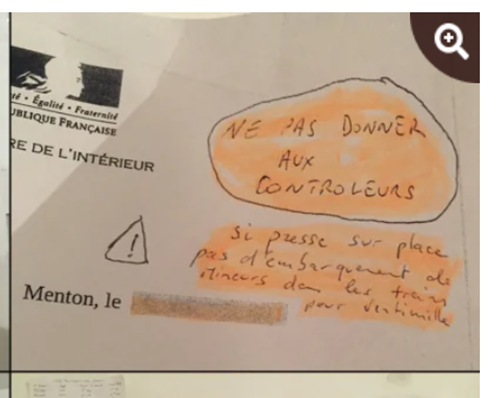 té • Égalité • Fraternité
UBLIQUE FRANÇAISE
RE DE L'INTÉRIEUR
NE PAS DONNER
AUX
CONTROLEURS
!
si presse sur place
pas d'embarquement de
mineurs dans les trains
pour Vintimille
Menton, le